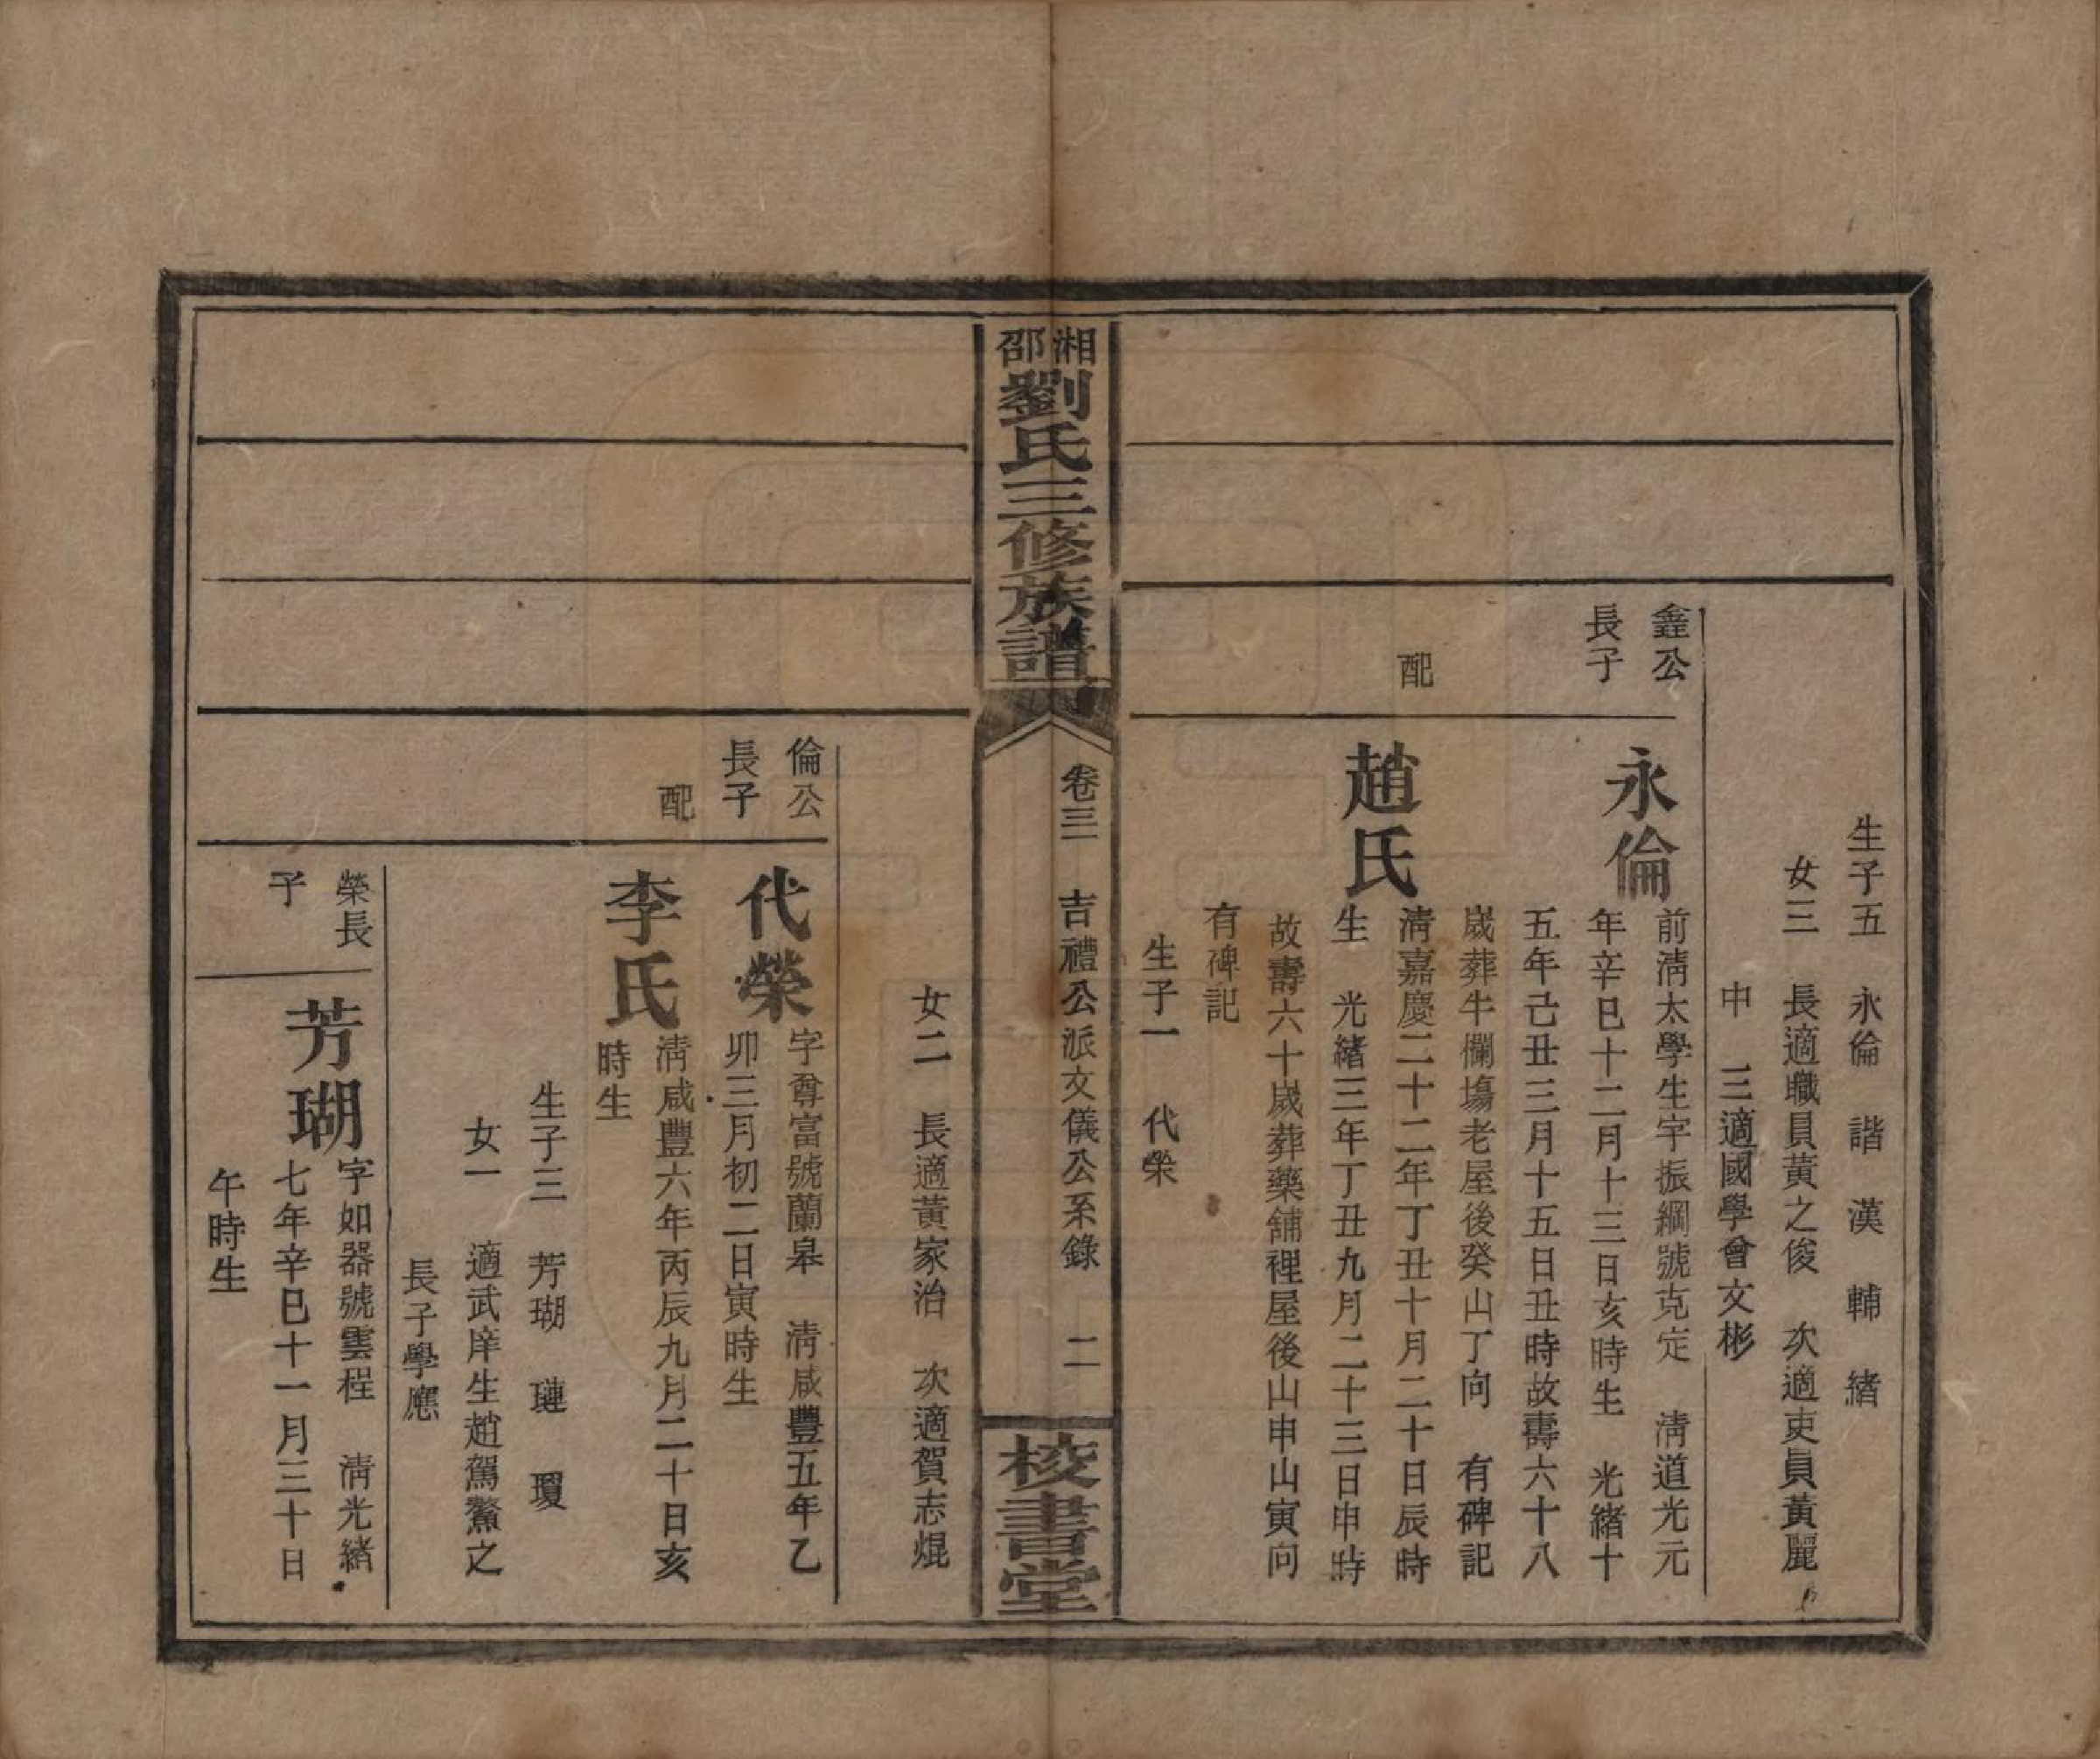 生子五　永倫　諧　漢　輔　緒
女三　長適職員黃之俊　次適吏員黃麗
中　三適國學曾文彬
鑫公
長子
永倫
前淸太學生字振綱號克定　淸道光元
年辛巳十二月十三日亥時生　光緒十
五年己丑三月十五日丑時故壽六十八
歲葬牛欄塲老屋後癸山丁向　有碑記
配
趙氏
淸嘉慶二十二年丁丑十月二十日辰時
生　光緒三年丁丑九月二十三日申時
故壽六十歲葬藥舖裡屋後山申山寅向
有碑記
生子一　代榮
湘邵劉氏三修族譜
卷三　吉禮公派文儀公系錄　二
校書堂
女二　長適黃家治　次適賀志焜
倫公
長子
代榮
字尊富號蘭皋　淸咸豐五年乙
卯三月初二日寅時生
配
李氏
淸咸豐六年丙辰九月二十日亥
時生
生子三　芳瑚　璉　瓊
女一　適武庠生趙駕鰲之
長子學應
榮長
子
芳瑚
字如器號雲程　淸光緒
七年辛巳十一月三十日
午時生